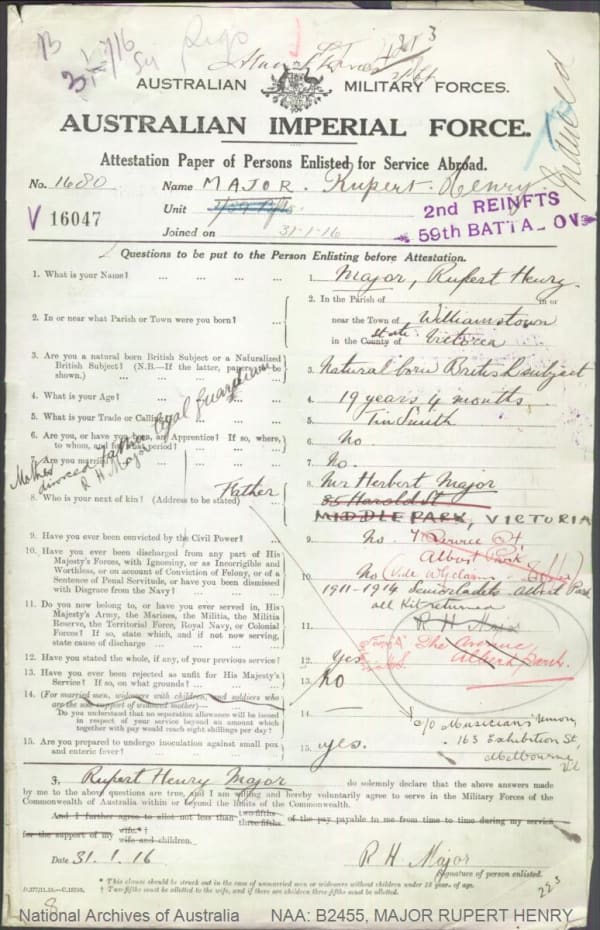 31/1/16
AUSTRALIAN MILITARY FORCES.
AUSTRALIAN IMPERIAL FORCE.
Attestation Paper of Persons Enlisted for Service Abroad.
No. 1680 Name MAJOR. Rupert Henry.
V 16047 Unit
2nd REINFTS
59th BATTALION
Joined on 31-1-16
Questions to be put to the Person Enlisting before Attestation.
1. What is your Name? ... ... ... ... 1. Major, Rupert Henry.
2. In or near what Parish or Town were you born? ... 2. In the Parish of in or
near the Town of Williamstown
in the County of State Victoria
3. Are you a natural born British Subject or a Naturalized
British Subject? (N.B.—If the latter, papers to be
shown.) ... ... 3. Natural born British subject
4. What is your Age? ... ... 4. 19 years 4 months
5. What is your Trade or Calling? ... 5. Tin Smith
6. Are you, or have you been, an Apprentice? If so, where,
to whom, and for what period? ... 6. No
7. Are you married? 7. No.
Mother divorced father legal guardian
R H Major
8. Who is your next of kin? (Address to be stated) Father 8. Mr Herbert Major
85 Harold St
MIDDLE PARK, VICTORIA
9. Have you ever been convicted by the Civil Power? ... 9. No.
Albert Park
10. Have you ever been discharged from any part of His
Majesty's Forces, with Ignominy, or as Incorrigible and
Worthless, or on account of Conviction of Felony, or of a
Sentence of Penal Servitude, or have you been dismissed
with Disgrace from the Navy? ... 10. No
1911-1914 Senior Cadets Albert Park
all Kit returned
R H Major
11. Do you now belong to, or have you ever served in, His
Majesty's Army, the Marines, the Militia, the Militia
Reserve, the Territorial Force, Royal Navy, or Colonial
Forces? If so, state which, and if not now serving,
state cause of discharge ... 11.
The Avenue
Albert Park.
12. Have you stated the whole, if any, of your previous service? 12. Yes
13. Have you ever been rejected as unfit for His Majesty's
Service? If so, on what grounds? ... 13. No
14. (For married men, widowers with children, and soldiers who
are the sole support of widowed mother)—
Do you understand that no separation allowance will be issued
in respect of your service beyond an amount which
together with pay would reach eight shillings per day? 14. —
c/o Musicians Union,
163 Exhibition St,
Melbourne
Vic
15. Are you prepared to undergo inoculation against small pox
and enteric fever? ... 15. yes.
I, Rupert Henry Major do solemnly declare that the above answers made
by me to the above questions are true, and I am willing and hereby voluntarily agree to serve in the Military Forces of the
Commonwealth of Australia within or beyond the limits of the Commonwealth.
And I further agree to allot not less than two-fifths three-fifths of the pay payable to me from time to time during my service
for the support of my wife.* † wife and children.
Date 31.1.16 R H Major
Signature of person enlisted.
* This clause should be struck out in the case of unmarried men or widowers without children under 18 years of age.
† Two-fifths must be allotted to the wife, and if there are children three-fifths must be allotted.
National Archives of Australia NAA: B2455, MAJOR RUPERT HENRY